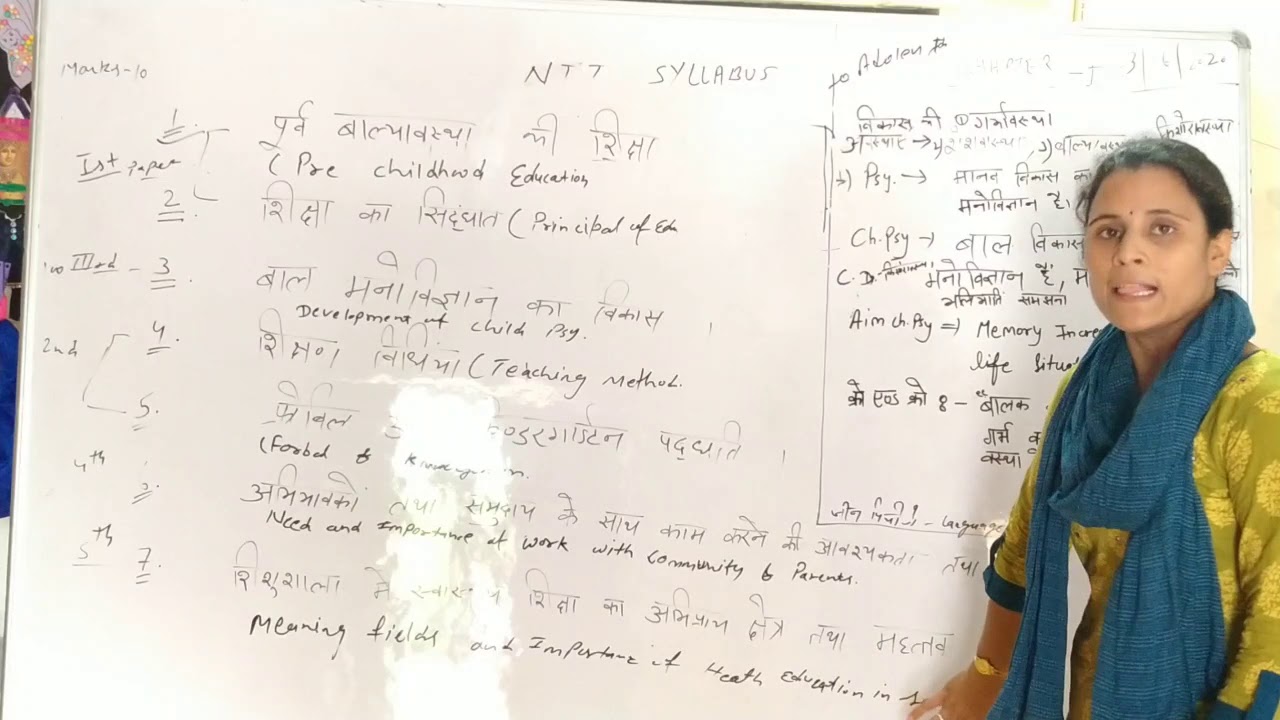 Marks-10
NTT SYLLABUS
1.
पूर्व बाल्यावस्था की शिक्षा
Ist paper
( Pre childhood Education
2
शिक्षा का सिद्धांत ( Principal of Edu
IIIrd - 3
बाल मनोविज्ञान का विकास ।
Development of child Psy.
2nd
4.
शिक्षण विधियां ( Teaching Method.
5.
पद्धति ।
(Forbal &
4th
अभिभावकों तथा समुदाय के साथ काम करने की आवश्यकता तथा
Need and Importance of work with Community & Parents.
5th 7.
शिशुशाला में स्वास्थ्य शिक्षा का अभिप्राय क्षेत्र तथा महत्व
Meaning fields and Importance of Heath Education in
to Adolen
विकास की ① गर्भावस्था
किशोरावस्था
Psy. → मानव विकास का
मनोविज्ञान है,
Ch.Psy → बाल विकास
मनोविज्ञान है,
समझना
Aim ch.Psy ⇒ Memory Incre
life Situa
क्रो एण्ड क्रो 8 - बालक
गर्भ
वस्था
जीन पियाजे - Language